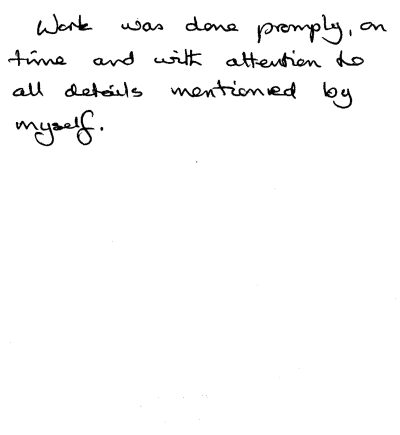 Work was done promply, on
time and with attention to
all details mentioned by
myself.